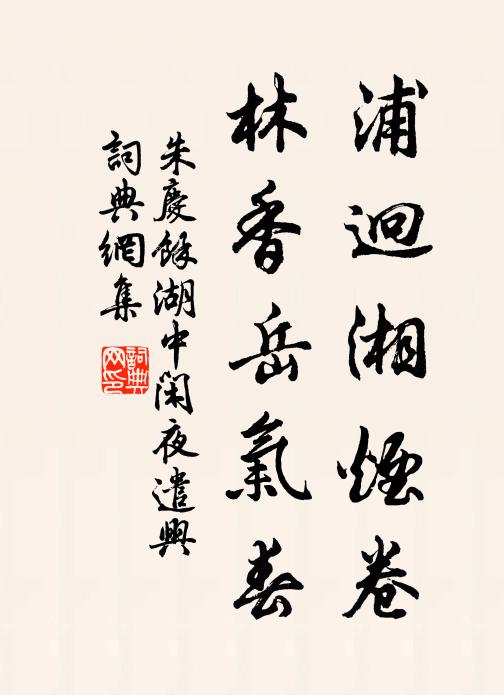 浦迴湘煙卷
林香岳氣春
朱慶餘湖中閑夜遣興
詞典網集
詞典网印